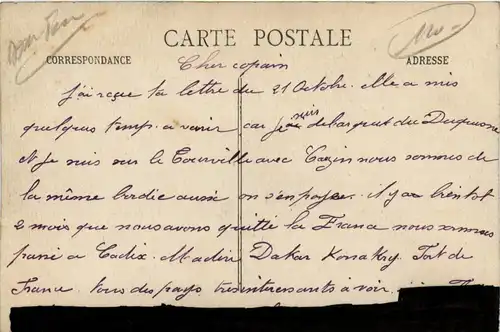 CARTE POSTALE
CORRESPONDANCE
ADRESSE
120-
Cher copain
J'ai reçue ta lettre du 21 Octobre. elle a mis
quelques temps a venir car je suis debarquet du Duquesne
et je suis sur le Tourville avec Cazin nous sommes de
la même bordée aussi on s'en paye. il y a bientot
2 mois que nous avons quitté la France nous sommes
passé a Cadix. Madère Dakar Konakry Fort de
France. tous des pays tres interessants a voir